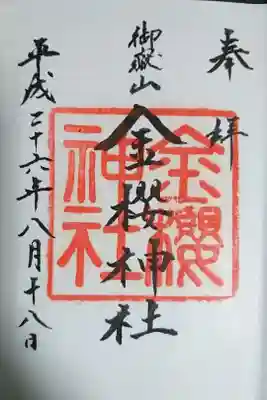 奉拝
御嶽山
金櫻神社
金櫻神社
平成二十六年八月十八日